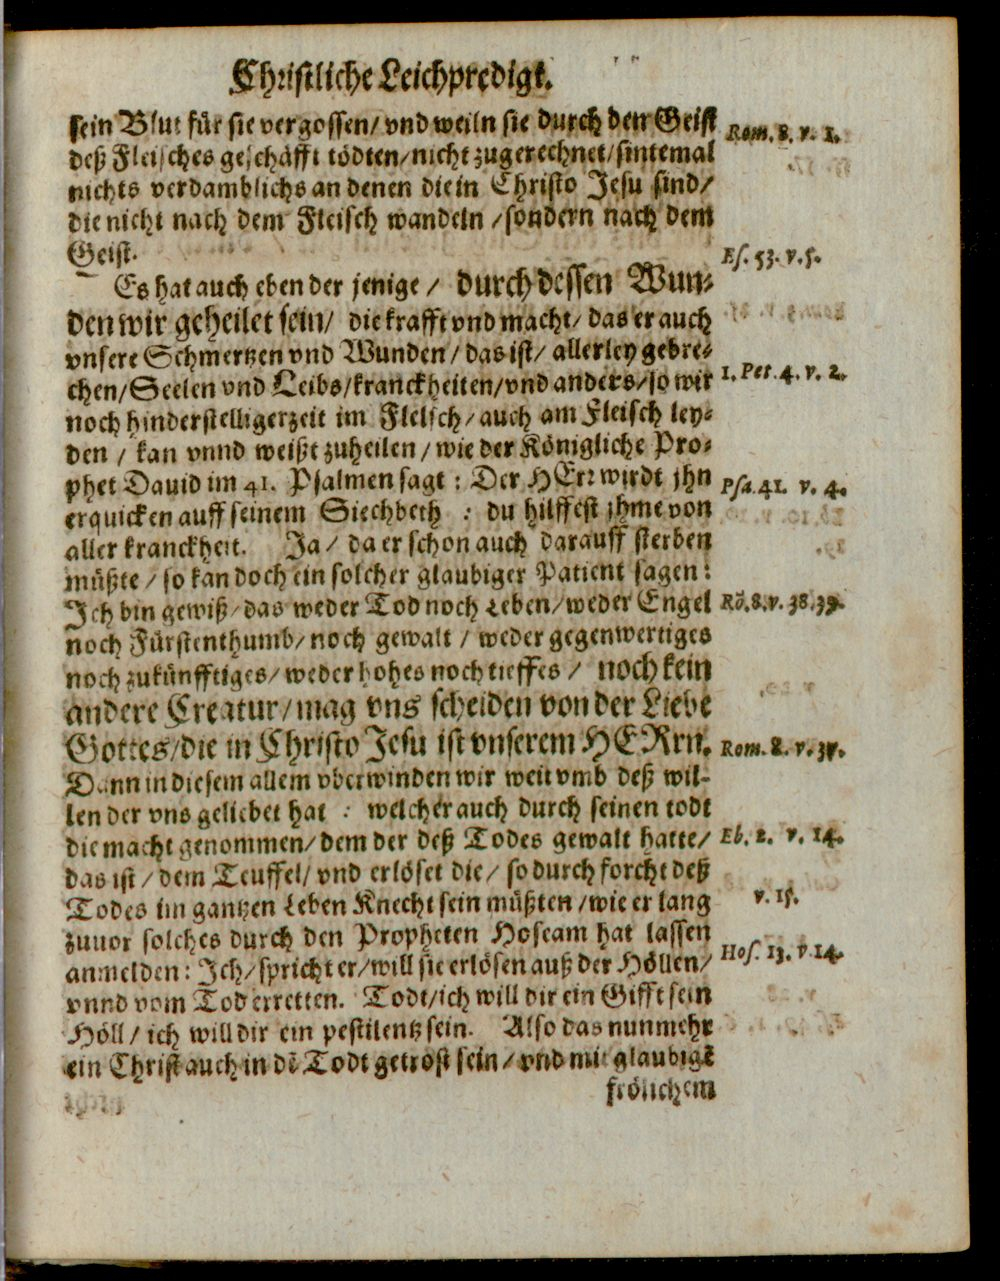 Christliche Leichpredigt.
sein Blut für sie vergossen/ vnd weiln sie durch den Geist
deß Fleisches geschäfft tödten/ nicht zugerechnet/ sintemal
nichts verdamblichs an denen die in Christo Jesu sind/
die nicht nach dem Fleisch wandeln / sondern nach dem
Geist.
Rom. 8. v. 1.
Es hat auch eben der jenige / durch dessen Wun-
den wir geheilet sein/ die krafft vnd macht/ das er auch
vnsere Schmertzen vnd Wunden / das ist/ allerley gebre-
chen/ Seelen vnd Leibs/ kranckheiten/ vnd anders/ so wir
noch hinderstelligerzeit im Fleisch/ auch am Fleisch ley-
den / kan vnnd weißt zuheilen / wie der Königliche Pro-
phet Dauid im 41. Psalmen sagt : Der HErr wirdt jhn
erquicken auff seinem Siechbeth : du hilffest jhme von
aller kranckheit. Ja / da er schon auch darauff sterben
müßte / so kan doch ein solcher glaubiger Patient sagen:
Ich bin gewiß/ das weder Tod noch Leben/ weder Engel
noch Fürstenthumb/ noch gewalt / weder gegenwertiges
noch zukünfftiges/ weder hohes noch tieffes / noch kein
andere Creatur/ mag vns scheiden von der Liebe
Gottes/ die in Christo Jesu ist vnserem HERrn.
Es. 53. v. 5.
1. Pet. 4. v. 2.
Psa. 41. v. 4.
Rö. 8. v. 38. 39.
Dann in diesem allem vberwinden wir weit vmb deß wil-
len der vns geliebet hat : welcher auch durch seinen todt
die macht genommen/ dem der deß Todes gewalt hatte/
das ist / dem Teuffel/ vnd erlöset die / so durch forcht deß
Todes im gantzen Leben Knecht sein müßten / wie er lang
zuuor solches durch den Propheten Hoseam hat lassen
anmelden: Ich/ spricht er/ will sie erlösen auß der Höllen/
vnnd vom Tod erretten. Todt/ ich will dir ein Gifft sein
Höll / ich will dir ein pestilentz sein. Also das nunmehr
ein Christ auch in dē Todt getrost sein / vnd mit glaubigē
Rom. 8. v. 37.
Eb. 2. v. 14.
v. 15.
Hos. 13. v 14.
frölichem